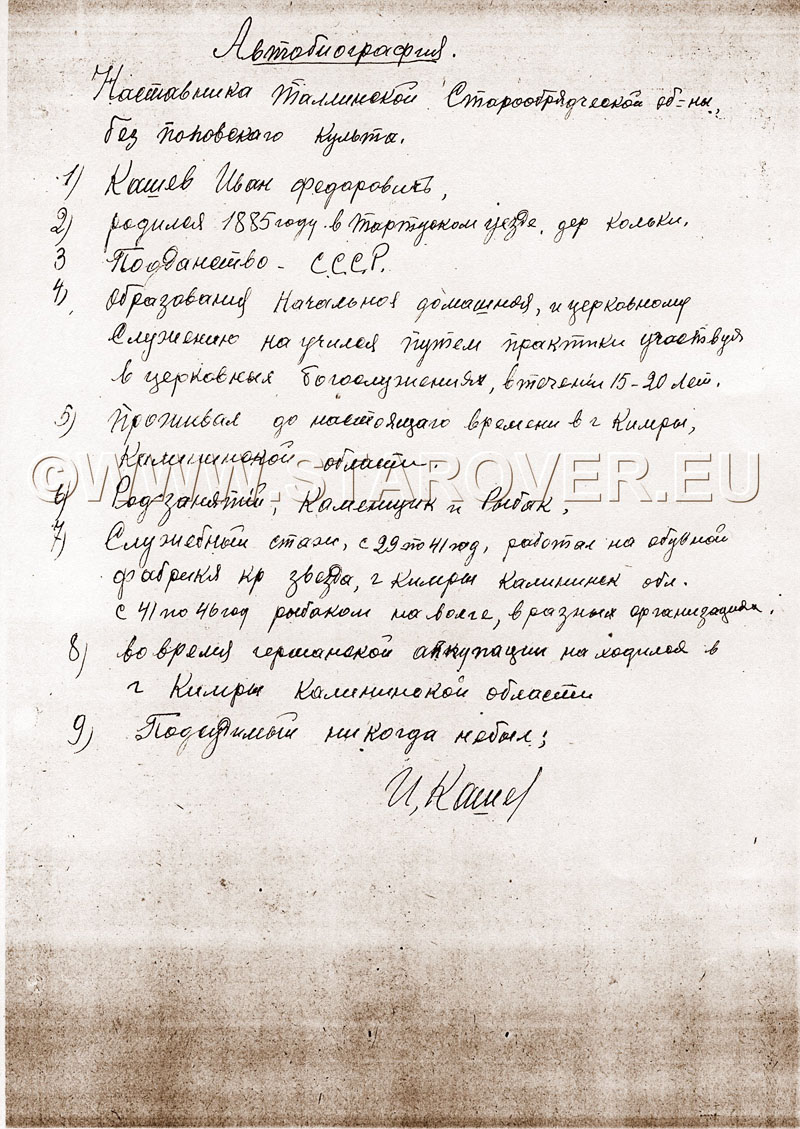 Автобиография.
Наставника Таллинской Старообрядческой об=ны,
без поповскаго культа.
1) Кашев Иван Федаровичь,
2) родился 1885 году в Тартуском уезде, дер Кольки.
3 Подданство - С.С.С.Р.
4) Образования Начальноя домашноя, и церковному
Служению научился путем практики участвуя
в церковныя богослужениях, в течении 15-20 лет.
5) Проживал до настоящаго времени в г Кимры,
Калининской области.
©WWW.STAROVER.EU
6) Род занятий; Каменщик и Рыбак,
7) Служебный стаж, с 29 по 41 год, работал на обувной
фабрикя кр звезда, г Кимры Калининск обл.
с 41 по 46 год рыбаком на волге, в разных организациях.
8) во время германской аккупации находился в
г Кимры Калининской области
9) Подсудимый никогда небыл;
И, Кашев